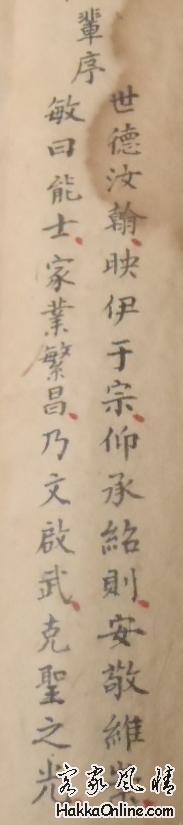 輩序
世德汝翰、映伊于宗、仰承紹則、安敬維
敏曰能士、家業繁昌、乃文啟武、克聖之光
客家風情
HakkaOnline.com